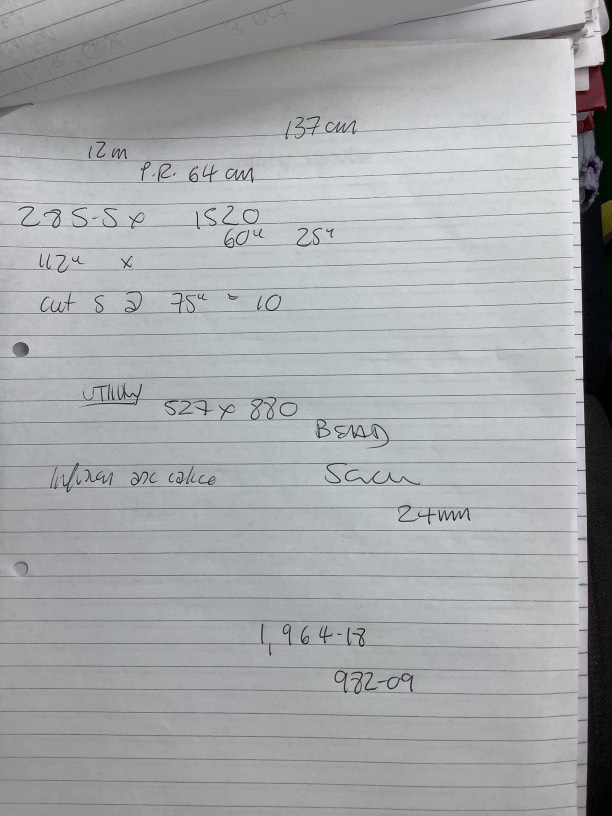 137 cm
12 m
P.R. 64 cm
285-5 x 1520
60" 25"
112" x
cut 5 @ 75" = 10
UTILITY
527 x 880
BEAD
24mm
1,964-18
982-09